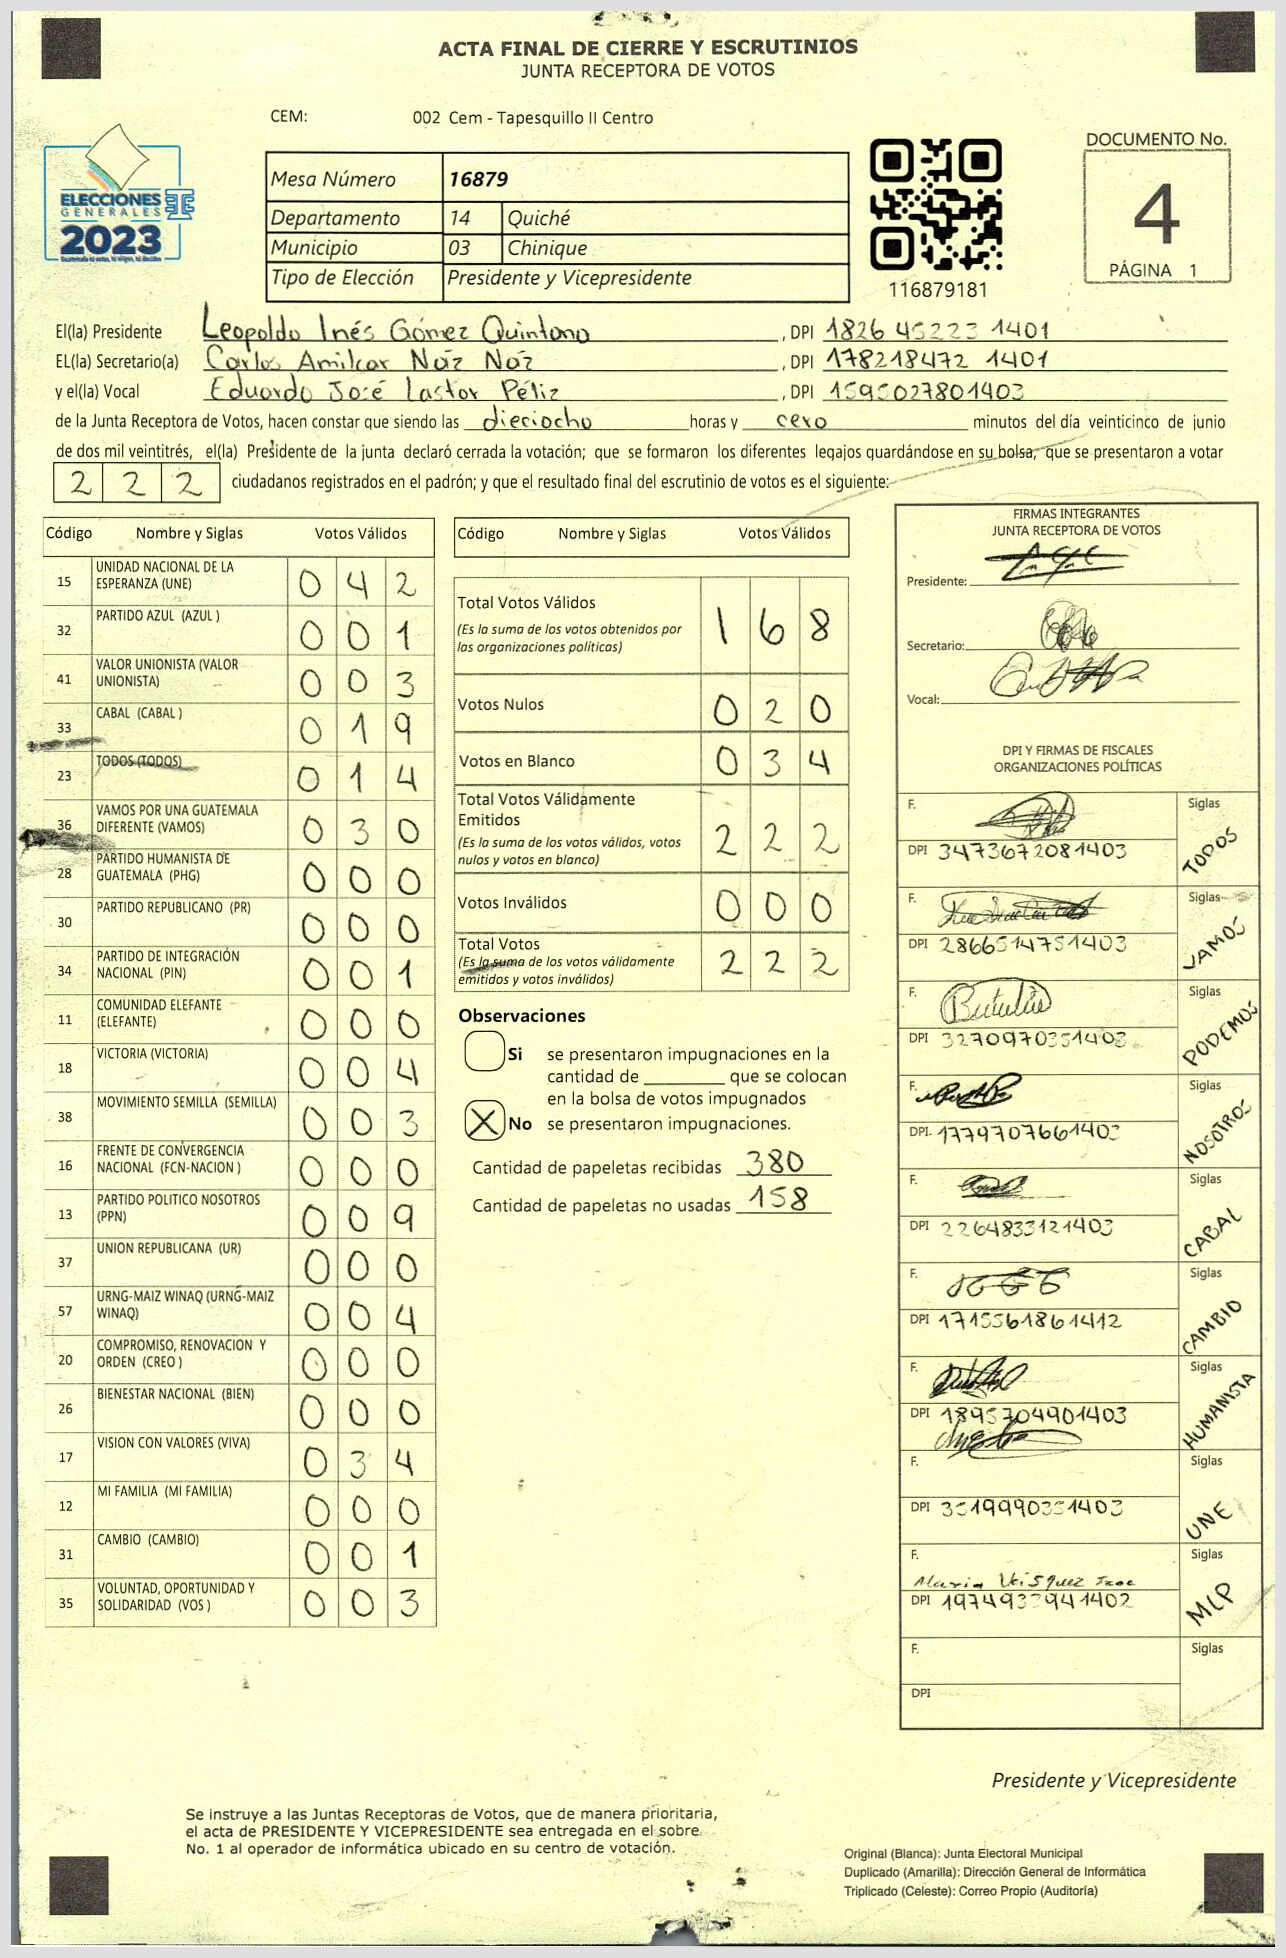 ACTA FINAL DE CIERRE Y ESCRUTINIOS
JUNTA RECEPTORA DE VOTOS
CEM: 002 Cem - Tapesquillo II Centro
ELECCIONES
GENERALES
2023
Mesa Número 16879
Departamento 14 Quiché
Municipio 03 Chinique
Tipo de Elección Presidente y Vicepresidente
116879181
DOCUMENTO No.
4
PÁGINA 1
El(la) Presidente Leopoldo Inés Gómez Quintana, DPI 1826 45223 1401
EL(la) Secretario(a) Carlos Amilcar Naz Naz, DPI 178218472 1401
y el(la) Vocal Eduardo José Lastor Péliz, DPI 1595027801403
de la Junta Receptora de Votos, hacen constar que siendo las dieciocho horas y cero minutos del día veinticinco de junio
de dos mil veintitrés, el(la) Presidente de la junta declaró cerrada la votación; que se formaron los diferentes legajos guardándose en su bolsa, que se presentaron a votar
2 2 2 ciudadanos registrados en el padrón; y que el resultado final del escrutinio de votos es el siguiente:
Código Nombre y Siglas Votos Válidos
15 UNIDAD NACIONAL DE LA ESPERANZA (UNE) 0 4 2
32 PARTIDO AZUL (AZUL ) 0 0 1
41 VALOR UNIONISTA (VALOR UNIONISTA) 0 0 3
33 CABAL (CABAL ) 0 1 9
23 TODOS (TODOS) 0 1 4
36 VAMOS POR UNA GUATEMALA DIFERENTE (VAMOS) 0 3 0
28 PARTIDO HUMANISTA DE GUATEMALA (PHG) 0 0 0
30 PARTIDO REPUBLICANO (PR) 0 0 0
34 PARTIDO DE INTEGRACIÓN NACIONAL (PIN) 0 0 1
11 COMUNIDAD ELEFANTE (ELEFANTE) 0 0 0
18 VICTORIA (VICTORIA) 0 0 4
38 MOVIMIENTO SEMILLA (SEMILLA) 0 0 3
16 FRENTE DE CONVERGENCIA NACIONAL (FCN-NACION ) 0 0 0
13 PARTIDO POLITICO NOSOTROS (PPN) 0 0 9
37 UNION REPUBLICANA (UR) 0 0 0
57 URNG-MAIZ WINAQ (URNG-MAIZ WINAQ) 0 0 4
20 COMPROMISO, RENOVACION Y ORDEN (CREO ) 0 0 0
26 BIENESTAR NACIONAL (BIEN) 0 0 0
17 VISION CON VALORES (VIVA) 0 3 4
12 MI FAMILIA (MI FAMILIA) 0 0 0
31 CAMBIO (CAMBIO) 0 0 1
35 VOLUNTAD, OPORTUNIDAD Y SOLIDARIDAD (VOS ) 0 0 3
Código Nombre y Siglas Votos Válidos
Total Votos Válidos 1 6 8
(Es la suma de los votos obtenidos por
las organizaciones políticas)
Votos Nulos 0 2 0
Votos en Blanco 0 3 4
Total Votos Válidamente
Emitidos 2 2 2
(Es la suma de los votos válidos, votos
nulos y votos en blanco)
Votos Inválidos 0 0 0
Total Votos 2 2 2
(Es la suma de los votos válidamente
emitidos y votos inválidos)
Observaciones
Si se presentaron impugnaciones en la
cantidad de ________ que se colocan
en la bolsa de votos impugnados
X No se presentaron impugnaciones.
Cantidad de papeletas recibidas 380
Cantidad de papeletas no usadas 158
FIRMAS INTEGRANTES
JUNTA RECEPTORA DE VOTOS
Presidente:
Secretario:
Vocal:
DPI Y FIRMAS DE FISCALES
ORGANIZACIONES POLÍTICAS
F. Siglas
DPI 3473672081403 TODOS
F. Siglas
DPI 2866514751403 VAMOS
F. Siglas
DPI 3270970351403 PODEMOS
F. Siglas
DPI 1779707661403 NOSOTROS
F. Siglas
DPI 2264833121403 CABAL
F. Siglas
DPI 1715561861412 CAMBIO
F. Siglas
DPI 1895704901403 HUMANISTA
F. Siglas
DPI 3519990351403 UNE
F. Maria Siglas
DPI 1974933941402 MLP
F. Siglas
DPI
Presidente y Vicepresidente
Se instruye a las Juntas Receptoras de Votos, que de manera prioritaria,
el acta de PRESIDENTE Y VICEPRESIDENTE sea entregada en el sobre
No. 1 al operador de informática ubicado en su centro de votación.
Original (Blanca): Junta Electoral Municipal
Duplicado (Amarilla): Dirección General de Informática
Triplicado (Celeste): Correo Propio (Auditoría)